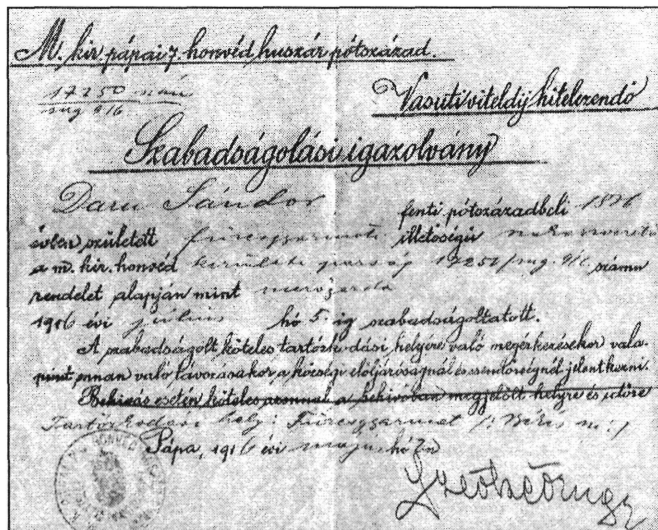 M. kir. pápai 7. honvéd huszár pótszázad.
17250 szám
aug 916
Vasuti viteldij hitelezendő
Szabadságolási igazolvány
Daru Sándor fenti pótszázadbeli 1876
évben született füzesgyarmati illetőségű
a m. kir. honvéd kerületi parság 17251/aug. 916 számu
rendelet alapján mint
1916 évi julius hó 5. ig szabadságoltatott.
A szabadságolt köteles tartózkodási helyére való megérkezésekor vala-
mint onnan való távozásakor a községi előljáróságnál és csendőrségnél jelentkezni.
Behivás esetén köteles azonnal a behivóban megjelölt helyre és időre
Tartózkodási hely: Füzesgyarmat Békés m.
Pápa, 1916 évi május hó